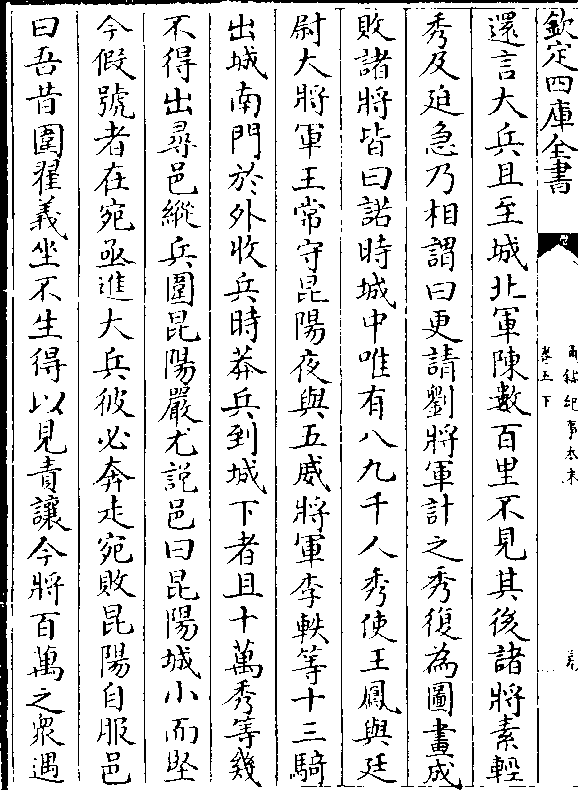 欽定四庫全書
通鑑紀事本末
卷五下
還言大兵且至城北軍陳數百里不見其後諸將素輕
秀及迫急乃相謂曰更請劉將軍計之秀復為圖畫成
敗諸將皆曰諾時城中唯有八九千人秀使王鳳與廷
尉大將軍王常守昆陽夜與五威將軍李軼等十三騎
出城南門於外收兵時莽兵到城下者且十萬秀等幾
不得出尋邑縱兵圍昆陽嚴尤說邑曰昆陽城小而堅
今假號者在宛亟進大兵彼必奔走宛敗昆陽自服邑
曰吾昔圍翟義坐不生得以見責讓今將百萬之眾遇